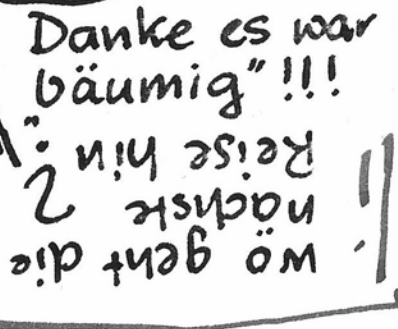 Danke es war
bäumig" !!!
wo geht die
nächste
Reise hin ?